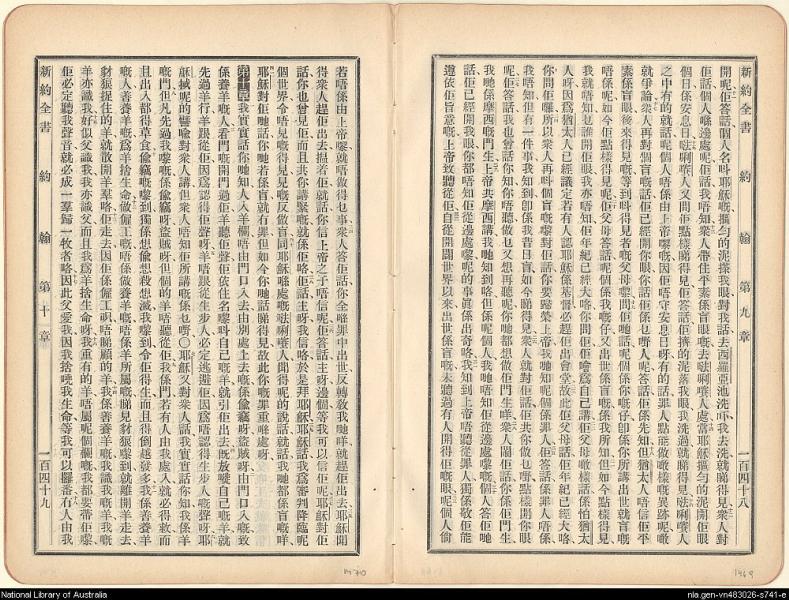 新約全書 約翰 第九章 一百四十八
開呢佢答話個人名呌耶穌嘅搵勻的泥搽我眼對我話去西羅亞池洗吓我去洗就睇得見衆人對
佢話個人喺邊處呢佢話我唔知衆人帶住平素係盲眼嘅去㗎唎嘥人處當耶穌搵勻的泥開佢眼
個日係安息日㗎唎嘥人又問佢點樣睇得見佢答話佢擠的泥落我眼我洗過就睇得見㗎唎嘥人
之中有的就話呢個人唔係由上帝嚟嘅因佢唔守安息日呀有的話罪人點能做噉樣嘅異跡呢噉
就爭論衆人再對個盲嘅話佢已經開你眼你話佢係乜嘢人呢答話佢係先知但猶太人唔信佢平
素係盲眼後來得見嘅等到呌得見者嘅父母嚟問佢哋話呢個係你嘅仔卽係你所講出世就盲嘅
唔係呢如今佢點樣得見呢佢父母答話呢個係我仔又出世係盲嘅係我所知但如今點樣得見
我就唔知乜誰開佢眼我亦唔知佢年紀已經大咯你問佢佢噲爲自己講佢父母噉樣話係怕猶太
人呀因爲猶太人已經議定若有人認耶穌係基督必趕佢出會堂故此佢父母話佢年紀已經大咯
你問佢囉所以衆人再呌個盲嘅嚟對佢話你要歸榮上帝我哋知呢個係罪人佢答話係罪人唔係
我唔知但有一件事我知到卽係我昔日盲如今睇得見衆人對佢話佢共你做乜嘢點樣開你眼
呢佢答話我也曾話你知你唔聽做乜又想再聽呢你哋都想做佢門生咩衆人鬧佢話你係佢門生
我哋係摩西嘅門生上帝共摩西講我哋知到嘅但係呢個人我哋唔知佢從邊處嚟嘅個人答佢哋
話佢已經開我眼你都唔知佢從邊處嚟呢的事眞係出奇咯我哋知到上帝唔聽從罪人獨係敬佢能
遵依佢旨意嘅上帝致聽從佢自從開闢世界以來出世係盲嘅未聽過有人開得佢嘅眼呢個人倘
若唔係由上帝嚟就唔做得乜事衆人答佢話你全喺罪中出世反轉敎我哋咩就趕佢出去耶穌聞
得衆人趕佢出去搵着佢就話你信上帝之子唔信呢佢答話主呀邊個等我可以信佢呢耶穌對佢
話你也曾見佢而且共你講緊嘅就係佢咯佢話主呀我信咯於是拜耶穌耶穌話我爲審判降臨呢
個世界令唔見嘅得見見嘅反做盲同耶穌喺處嘅㗎唎嘥人聞得呢的說話就話我哋都係盲嘅咩
耶穌對佢哋話你哋若係盲就冇罪但如今你哋話睇得見故此你嘅罪重喺處呀
第十章 我實實話你哋知人入羊欄唔由門口入去由別處上去嘅係偷竊呀盜賊呀由門口入嘅致
係養羊嘅人看門嘅開門過佢羊聽佢聲佢依住名嚟呌自己嘅羊就引佢出去旣放噃自己嘅羊就
先過羊行羊跟從佢因爲認得佢聲呀羊唔跟從生步人必定逃避佢因爲唔認得生步人嘅聲呀耶
穌掞呢的譬喩對衆人講但衆人唔知佢所講嘅係乜嘢〇耶穌又對衆人話我實實話你知我係羊
嘅門但凡先過我嚟嘅係偷竊呀盜賊呀但個的羊唔聽從佢我係門若有人由我處入就必得救而
且出入都得草食偷竊嘅嚟到獨係想偷想殺想滅我嚟到令佢得生而且得倒越發多我係善養羊
嘅人善養羊嘅爲羊捨生命做僱工嘅唔係做養羊嘅唔係羊所屬嘅睇見豺狼嚟到就離開羊走去
豺狼捉住的羊就散開羊羣咯佢走去因佢係僱工呮唔睇顧的羊我係善養羊嘅我識我嘅羊我
羊亦識我好似父識我我亦識父而且我爲羊捨生命呀我重有的羊唔屬呢個欄嘅我都要帶佢嚟
佢必定聽我聲音就必成一羣歸一牧者咯因此父愛我因我捨曉我生命等我可以攞番冇人由我
新約全書 約翰 第十章 一百四十九
National Library of Australia
nla.gen-vn483026-s741-e